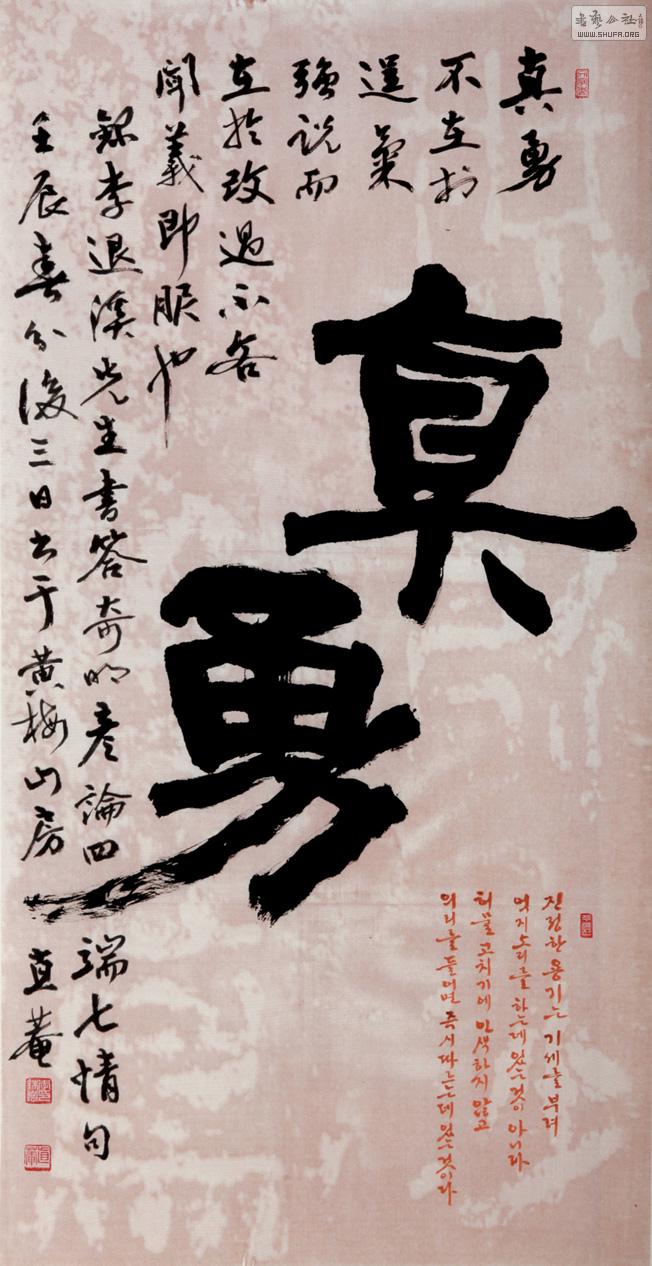 WWW.SHUFA.ORG
真勇
不在於
逞氣
強說而
在於改過不吝
聞義即服也
真勇
錄李退溪先生書答奇明彦論四端七情句
壬辰春分後三日書于黃梅山房 直菴
진정한 용기는 기세를 부려
억지소리를 하는데 있는것이 아니라
허물 고치기에 인색하지 않고
의리를 들으면 즉시따르는데 있는것이다